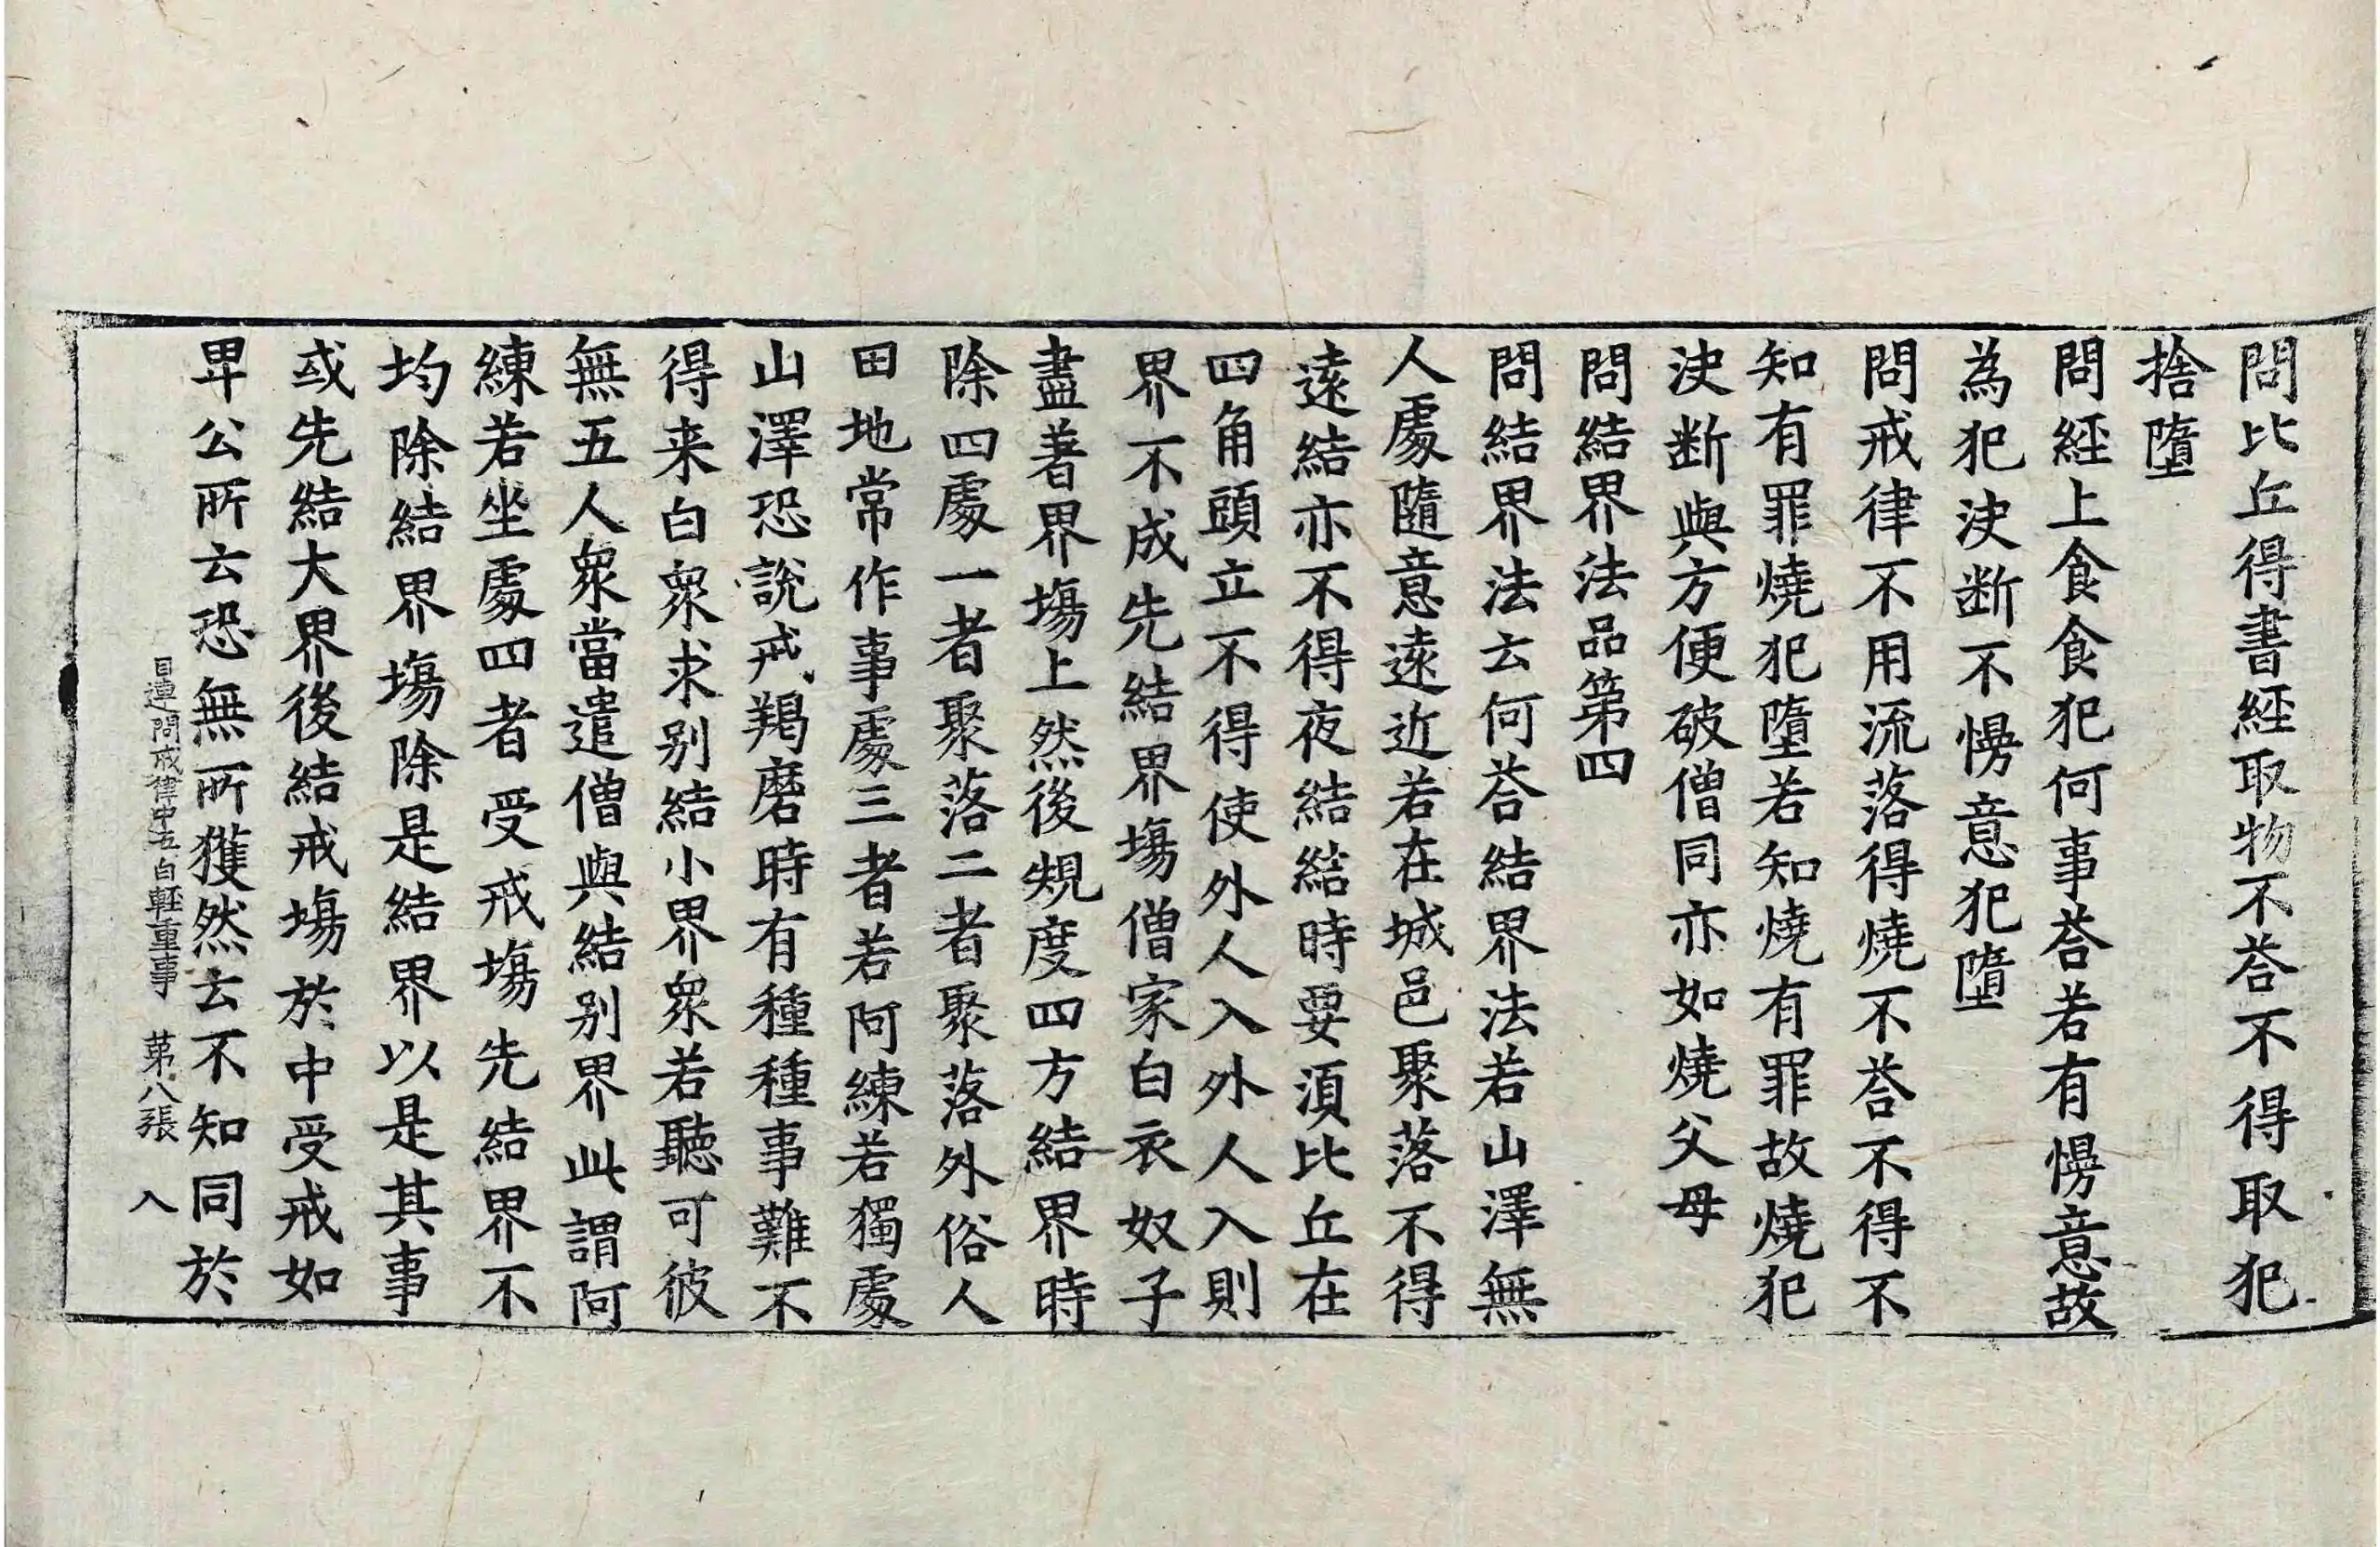 問比丘得書經取物不荅不得取犯
捨墮
問經上食食犯何事荅若有慢意故
為犯决斷不慢意犯墮
問戒律不用流落得燒不荅不得不
知有罪燒犯墮若知燒有罪故燒犯
决斷與方便破僧同亦如燒父母
問結界法品第四
問結界法云何荅結界法若山澤無
人處隨意遠近若在城邑聚落不得
遠結亦不得夜結結時要湏比丘在
四角頭立不得使外人入外人入則
界不成先結界塲僧家白衣奴子
盡著界塲上然後䂓度四方結界時
除四處一者聚落二者聚落外俗人
田地常作事處三者若阿練若獨處
山澤恐說戒羯磨時有種種事難不
得来白衆求別結小界衆若聽可彼
無五人衆當遣僧與結別界此謂阿
練若坐處四者受戒塲先結界不
均除結界塲除是結界以是其事
或先結大界後結戒塲於中受戒如
卑公所云恐無所獲然去不知同於
目連問戒律中五百輕重事　第八張　入